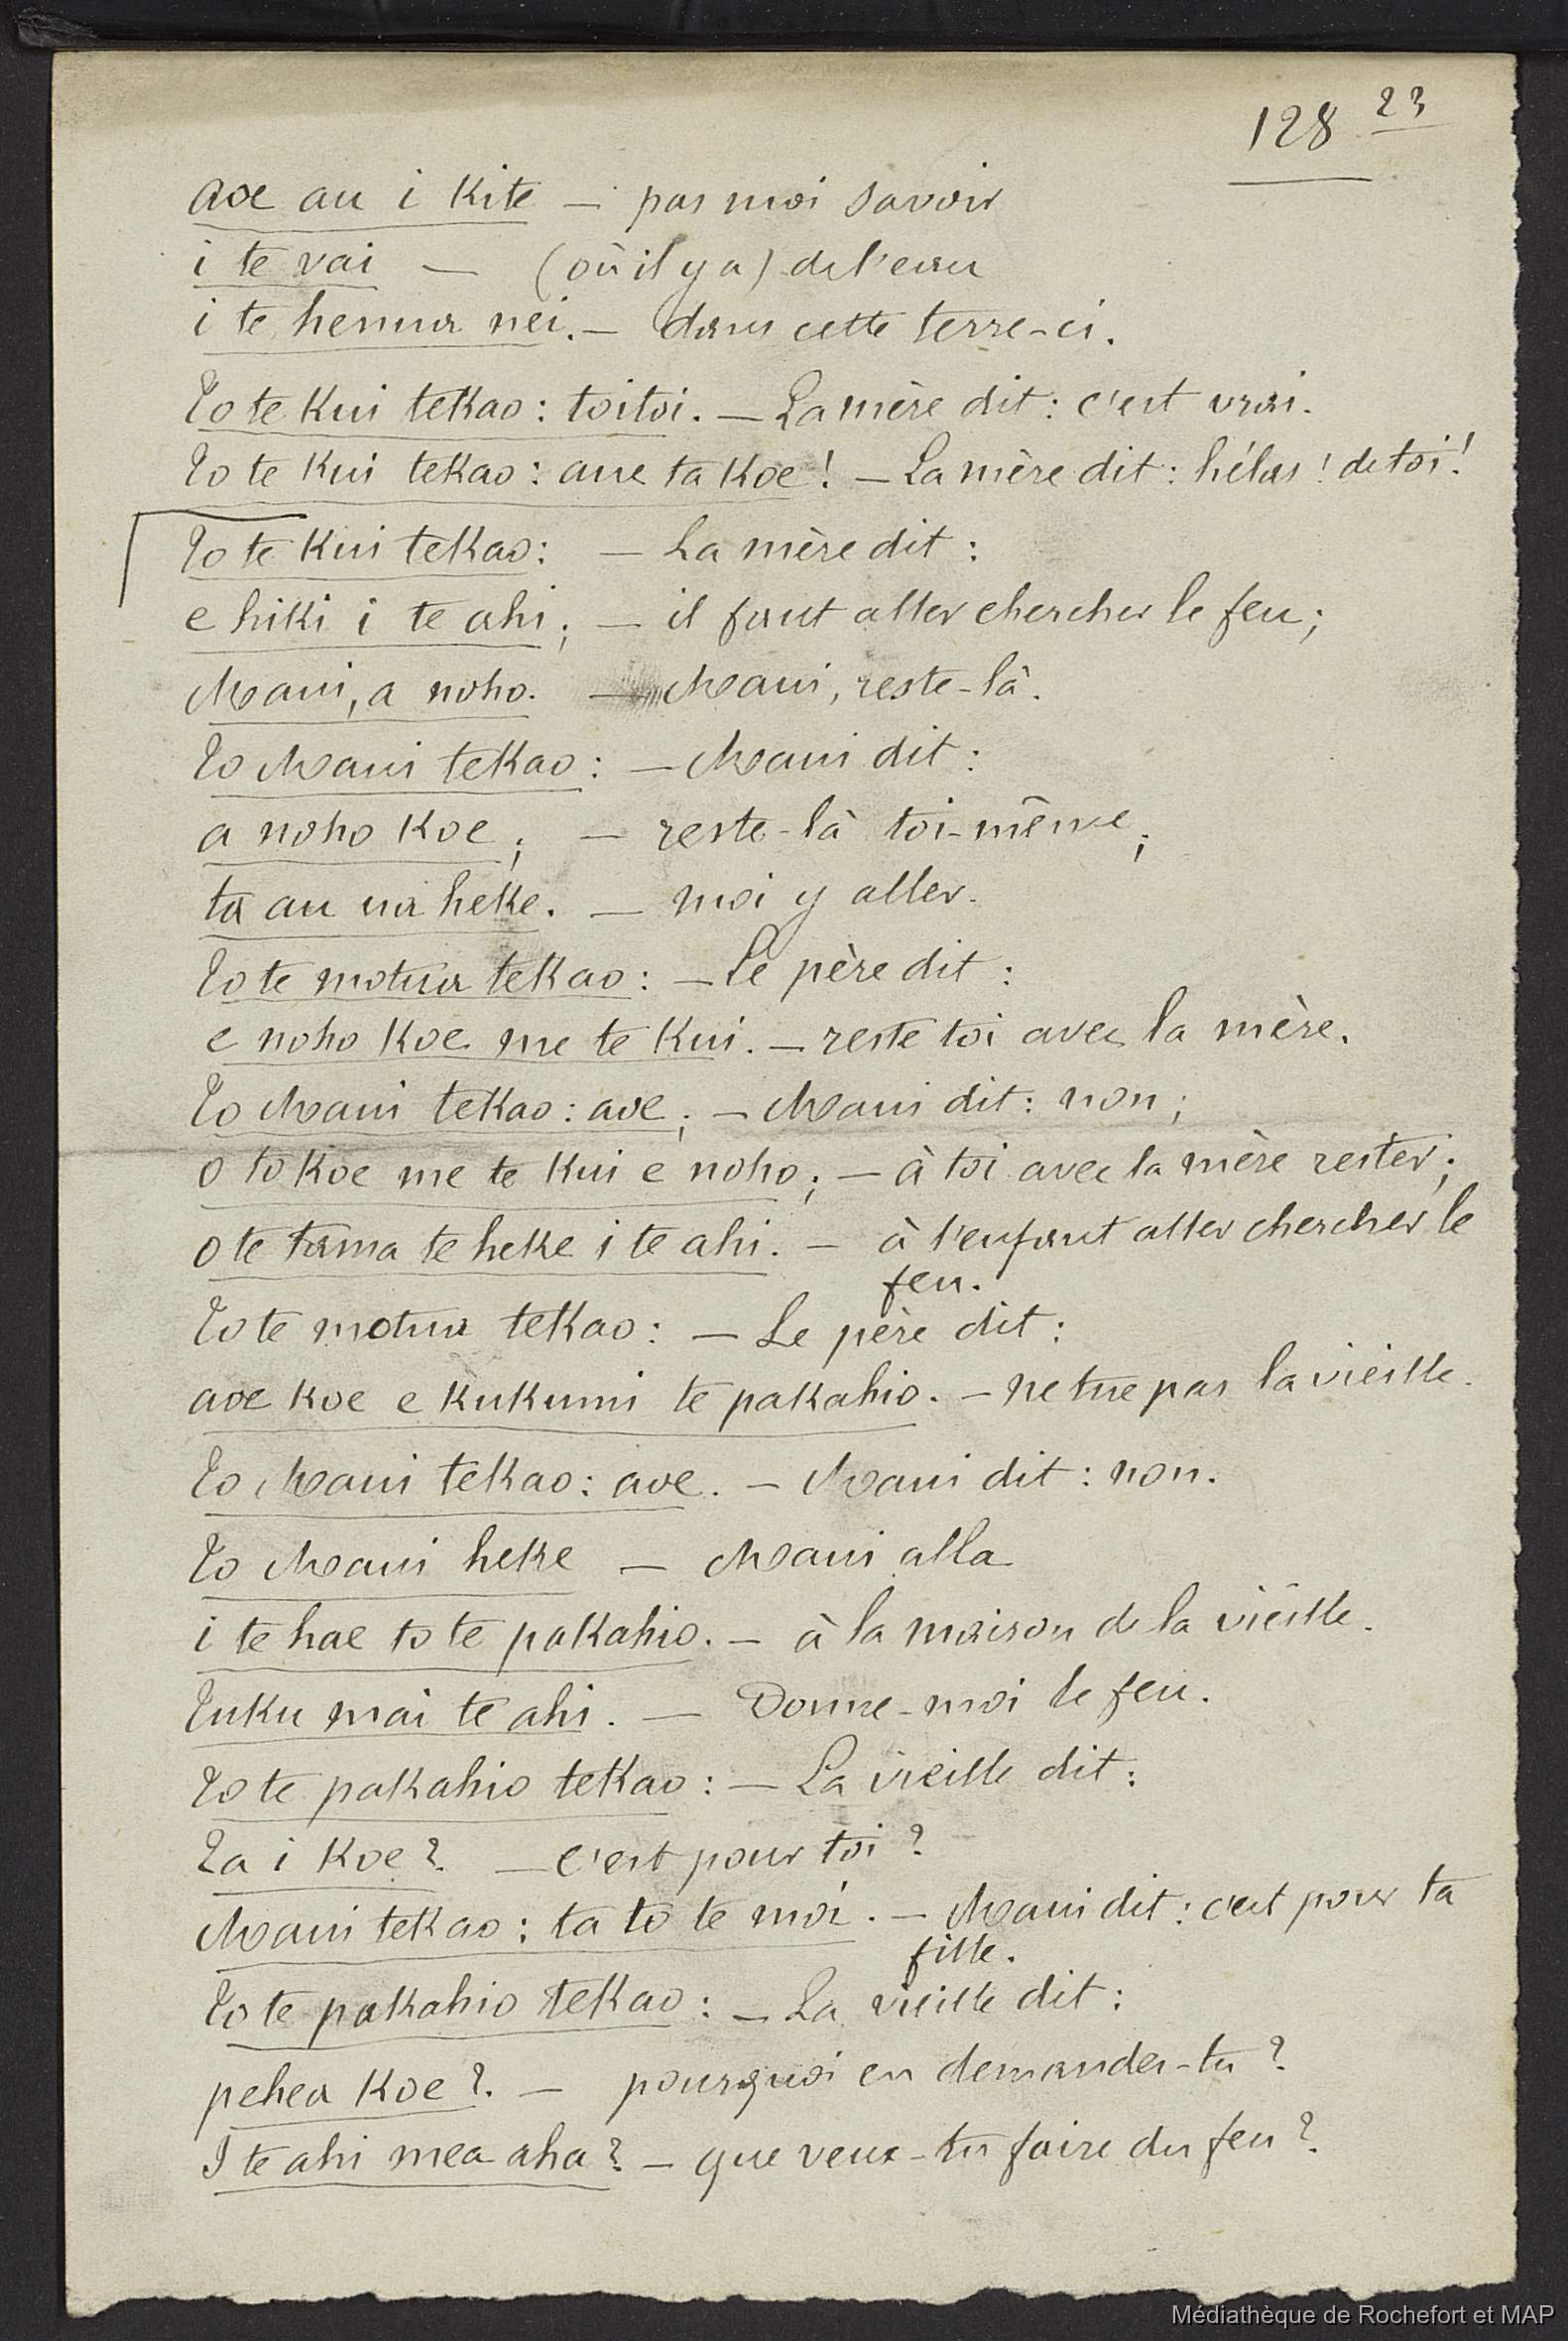 128 23
aoe au i kite — pas moi savoir
i te vai — (où il y a) de l'eau
i te henua nei. — dans cette terre-ci.
To te kui tekao: toitoi. — La mère dit: c'est vrai.
To te kui tekao: aue ta koe! — La mère dit: hélas! de toi!
To te kui tekao: — La mère dit:
e hiki i te ahi; — il faut aller chercher le feu;
Maui, a noho. — Maui, reste-là.
To Maui tekao: — Maui dit:
a noho koe; — reste-là toi-même;
ta au ua heke. — moi y aller.
To te motua tekao: — Le père dit:
e noho koe me te kui. — reste toi avec la mère.
To Maui tekao: aoe; — Maui dit: non;
o to koe me te kui e noho; — à toi avec la mère rester;
o te tama te heke i te ahi. — à l'enfant aller chercher le
feu.
To te motua tekao: — Le père dit:
aoe koe e kukumi te pakahio. — ne tue pas la vieille.
To Maui tekao: aoe. — Maui dit: non.
To Maui heke — Maui alla
i te hae to te pakahio. — à la maison de la vieille.
Tuku mai te ahi. — Donne-moi le feu.
To te pakahio tekao: — La vieille dit:
Ta i koe? — C'est pour toi?
Maui tekao: ta to te moi. — Maui dit: c'est pour ta
fille.
To te pakahio tekao: — La vieille dit:
pehea koe? — pourquoi en demandes-tu?
I te ahi mea aha? — que veux-tu faire du feu?
Médiathèque de Rochefort et MAP